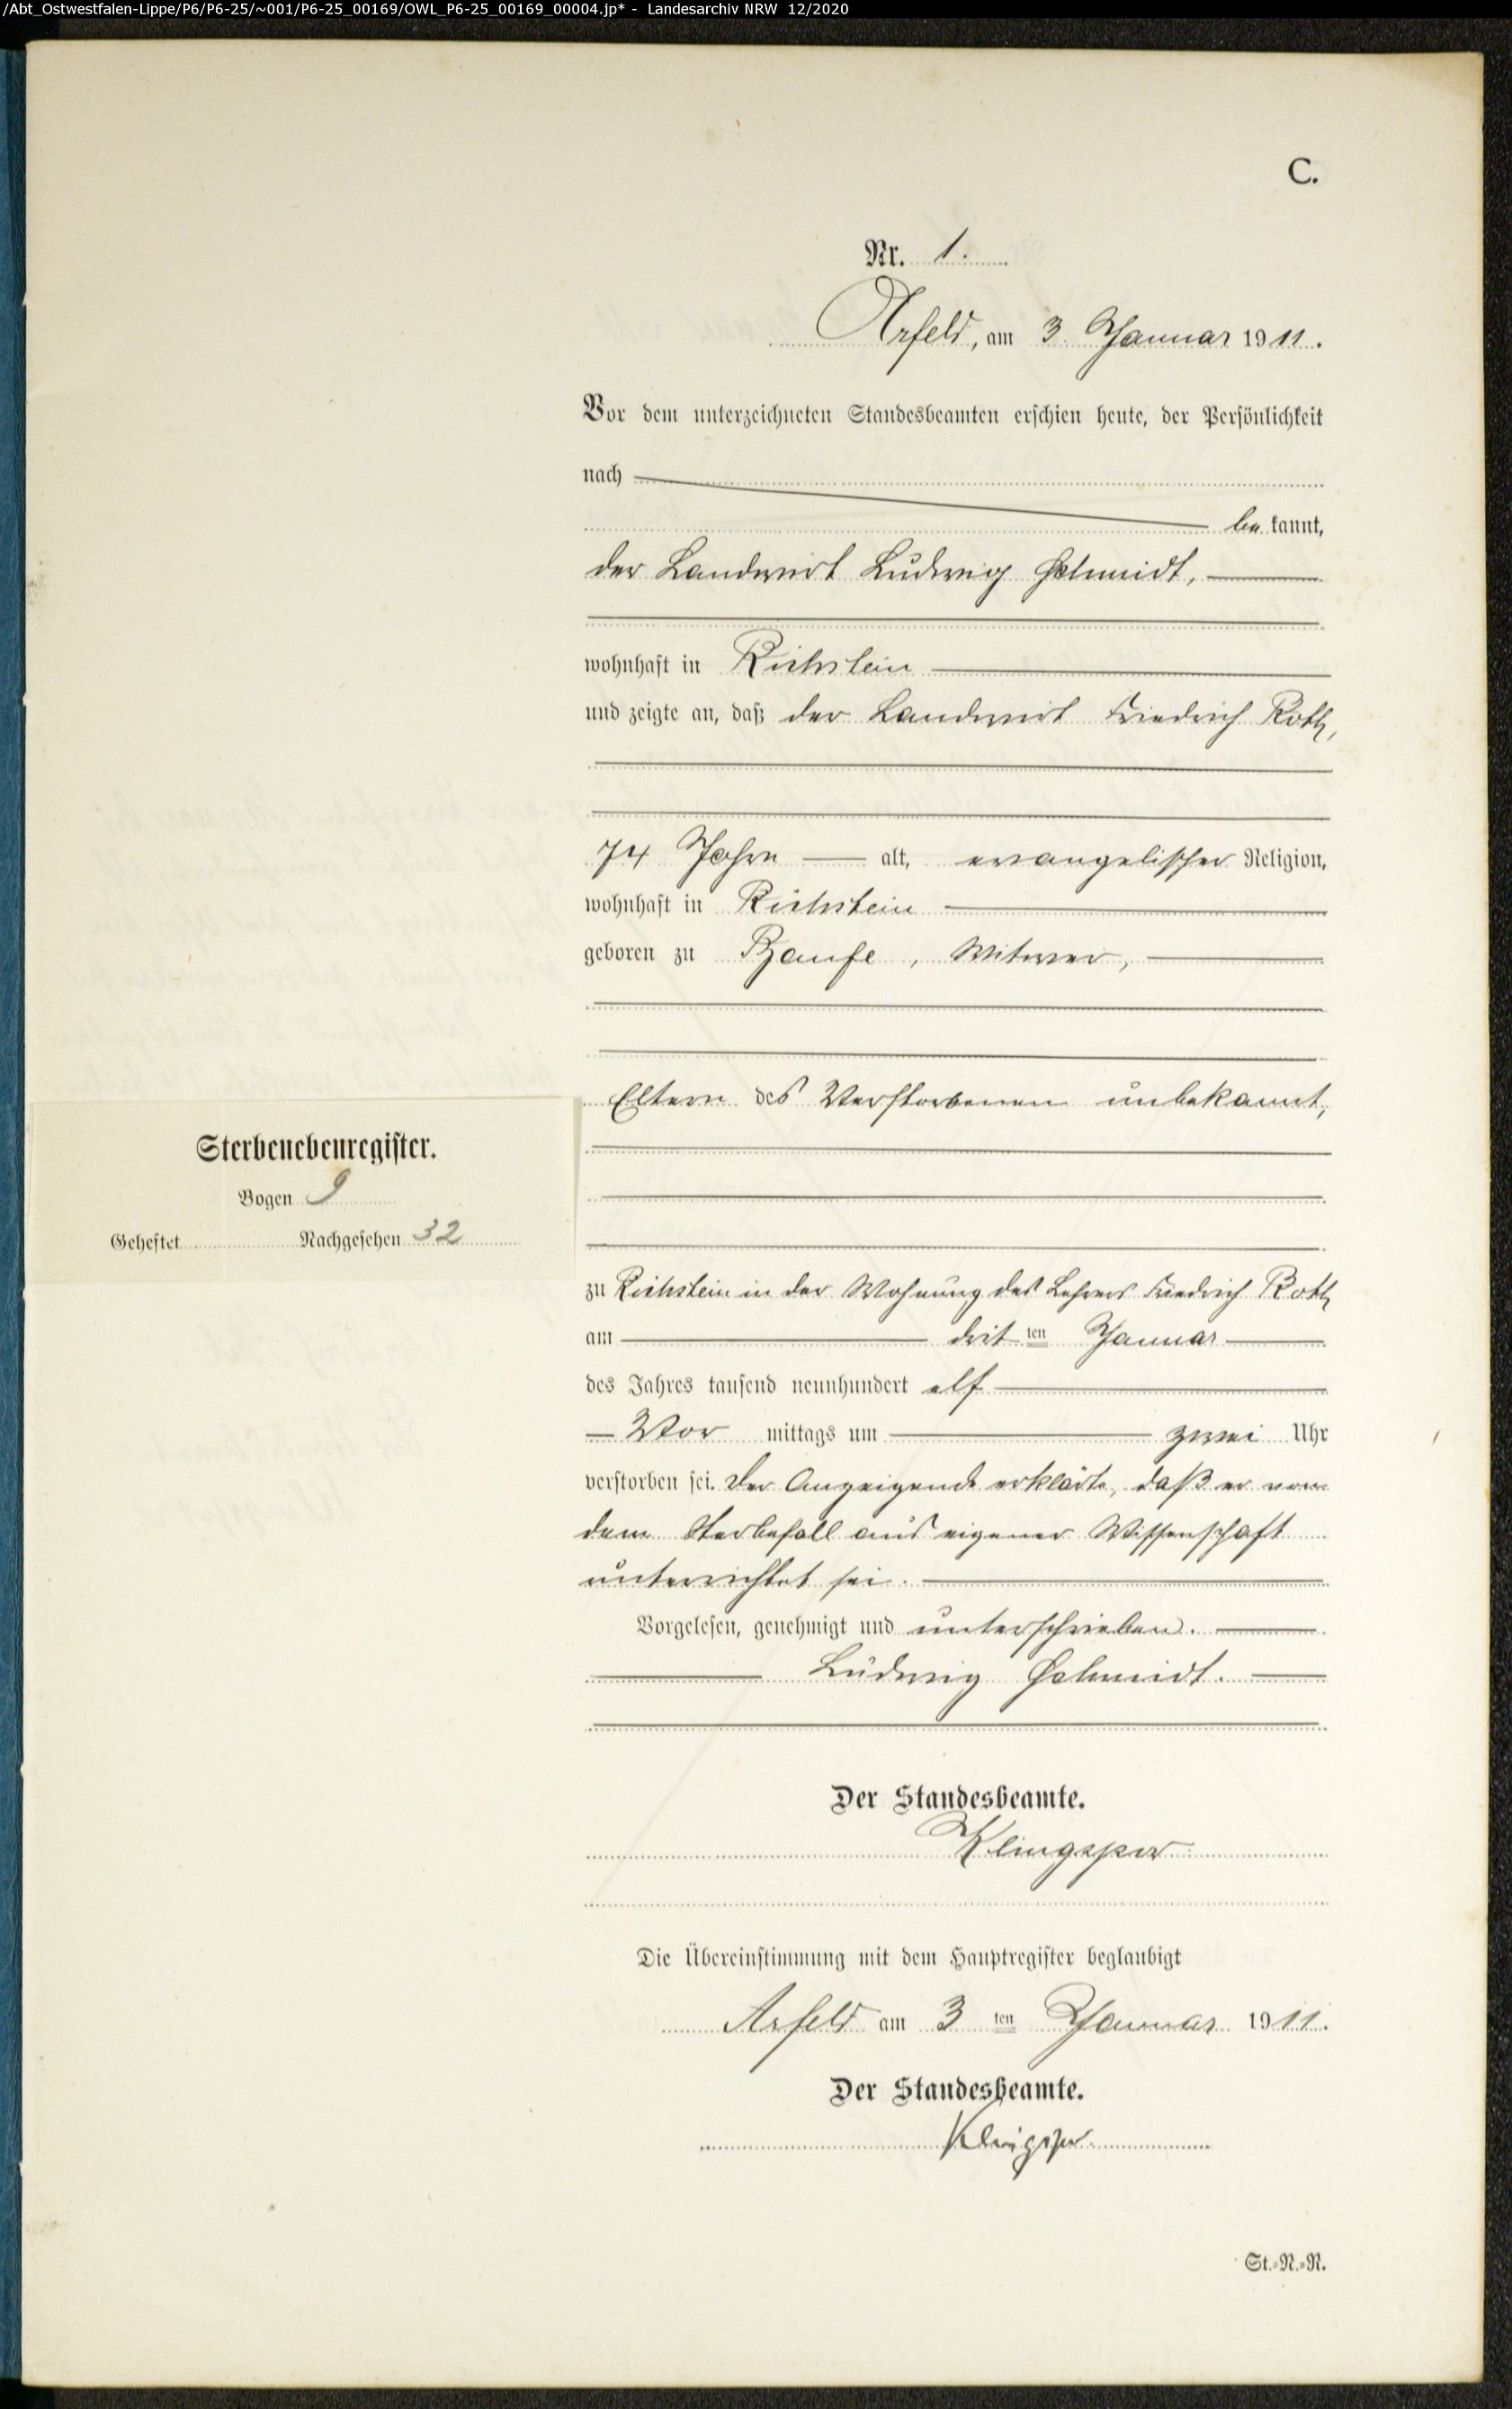 /Abt_Ostwestfalen-Lippe/P6/P6-25/~001/P6-25_00169/OWL_P6-25_00169_00004.jp* - Landesarchiv NRW 12/2020
C.
Nr. 1.
Arfeld, am 3. Januar 1911.
Vor dem unterzeichneten Standesbeamten erschien heute, der Persönlichkeit
nach
be kannt,
der Landwirt Ludwig Schmidt,
wohnhaft in Richstein
und zeigte an, daß der Landwirt Friedrich Roth,
74 Jahre alt, evangelischer Religion,
wohnhaft in Richstein
geboren zu Banfe, Witwer,
Eltern des Verstorbenen unbekannt,
Sterbenebenregister.
Bogen 9
Geheftet Nachgesehen 32
zu Richstein in der Wohnung des Lehrers Friedrich Roth
am drit ten Januar
des Jahres tausend neunhundert elf
Vor mittags um zwei Uhr
verstorben sei. Der Anzeigende erklärte, daß er von
dem Sterbefall aus eigener Wissenschaft
unterrichtet sei.
Vorgelesen, genehmigt und unterschrieben.
Ludwig Schmidt.
Der Standesbeamte.
Klingspor
Die Übereinstimmung mit dem Hauptregister beglaubigt
Arfeld am 3 ten Januar 1911.
Der Standesbeamte.
Klingspor
St.-N.-R.